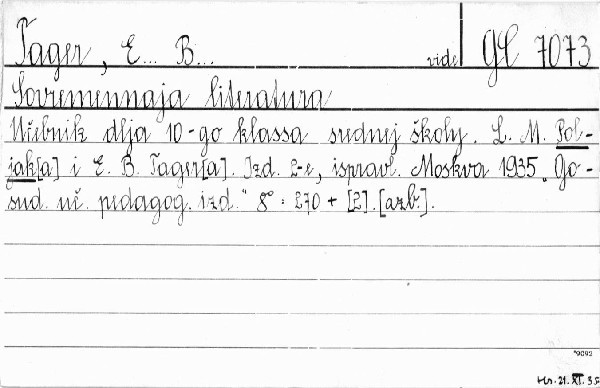 Tager, E... B... vide GC 7073
Sovremennaja literatura
Učebnik dlja 10-go klassa srednej školy. L. M. Pol-
jak[a] i E. B. Tager[a]. Izd. 2-e, ispravl. Moskva 1935 „Go-
sud. uč. pedagog. izd.“ 8° : 270 + [2]. [azb.].
*9092
Hr. 21. XI. 35